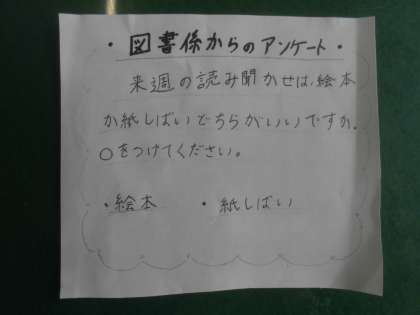 ・図書係からのアンケート・
来週の読み聞かせは、絵本
か紙しばいどちらがいいですか。
○をつけてください。
・絵本　・紙しばい